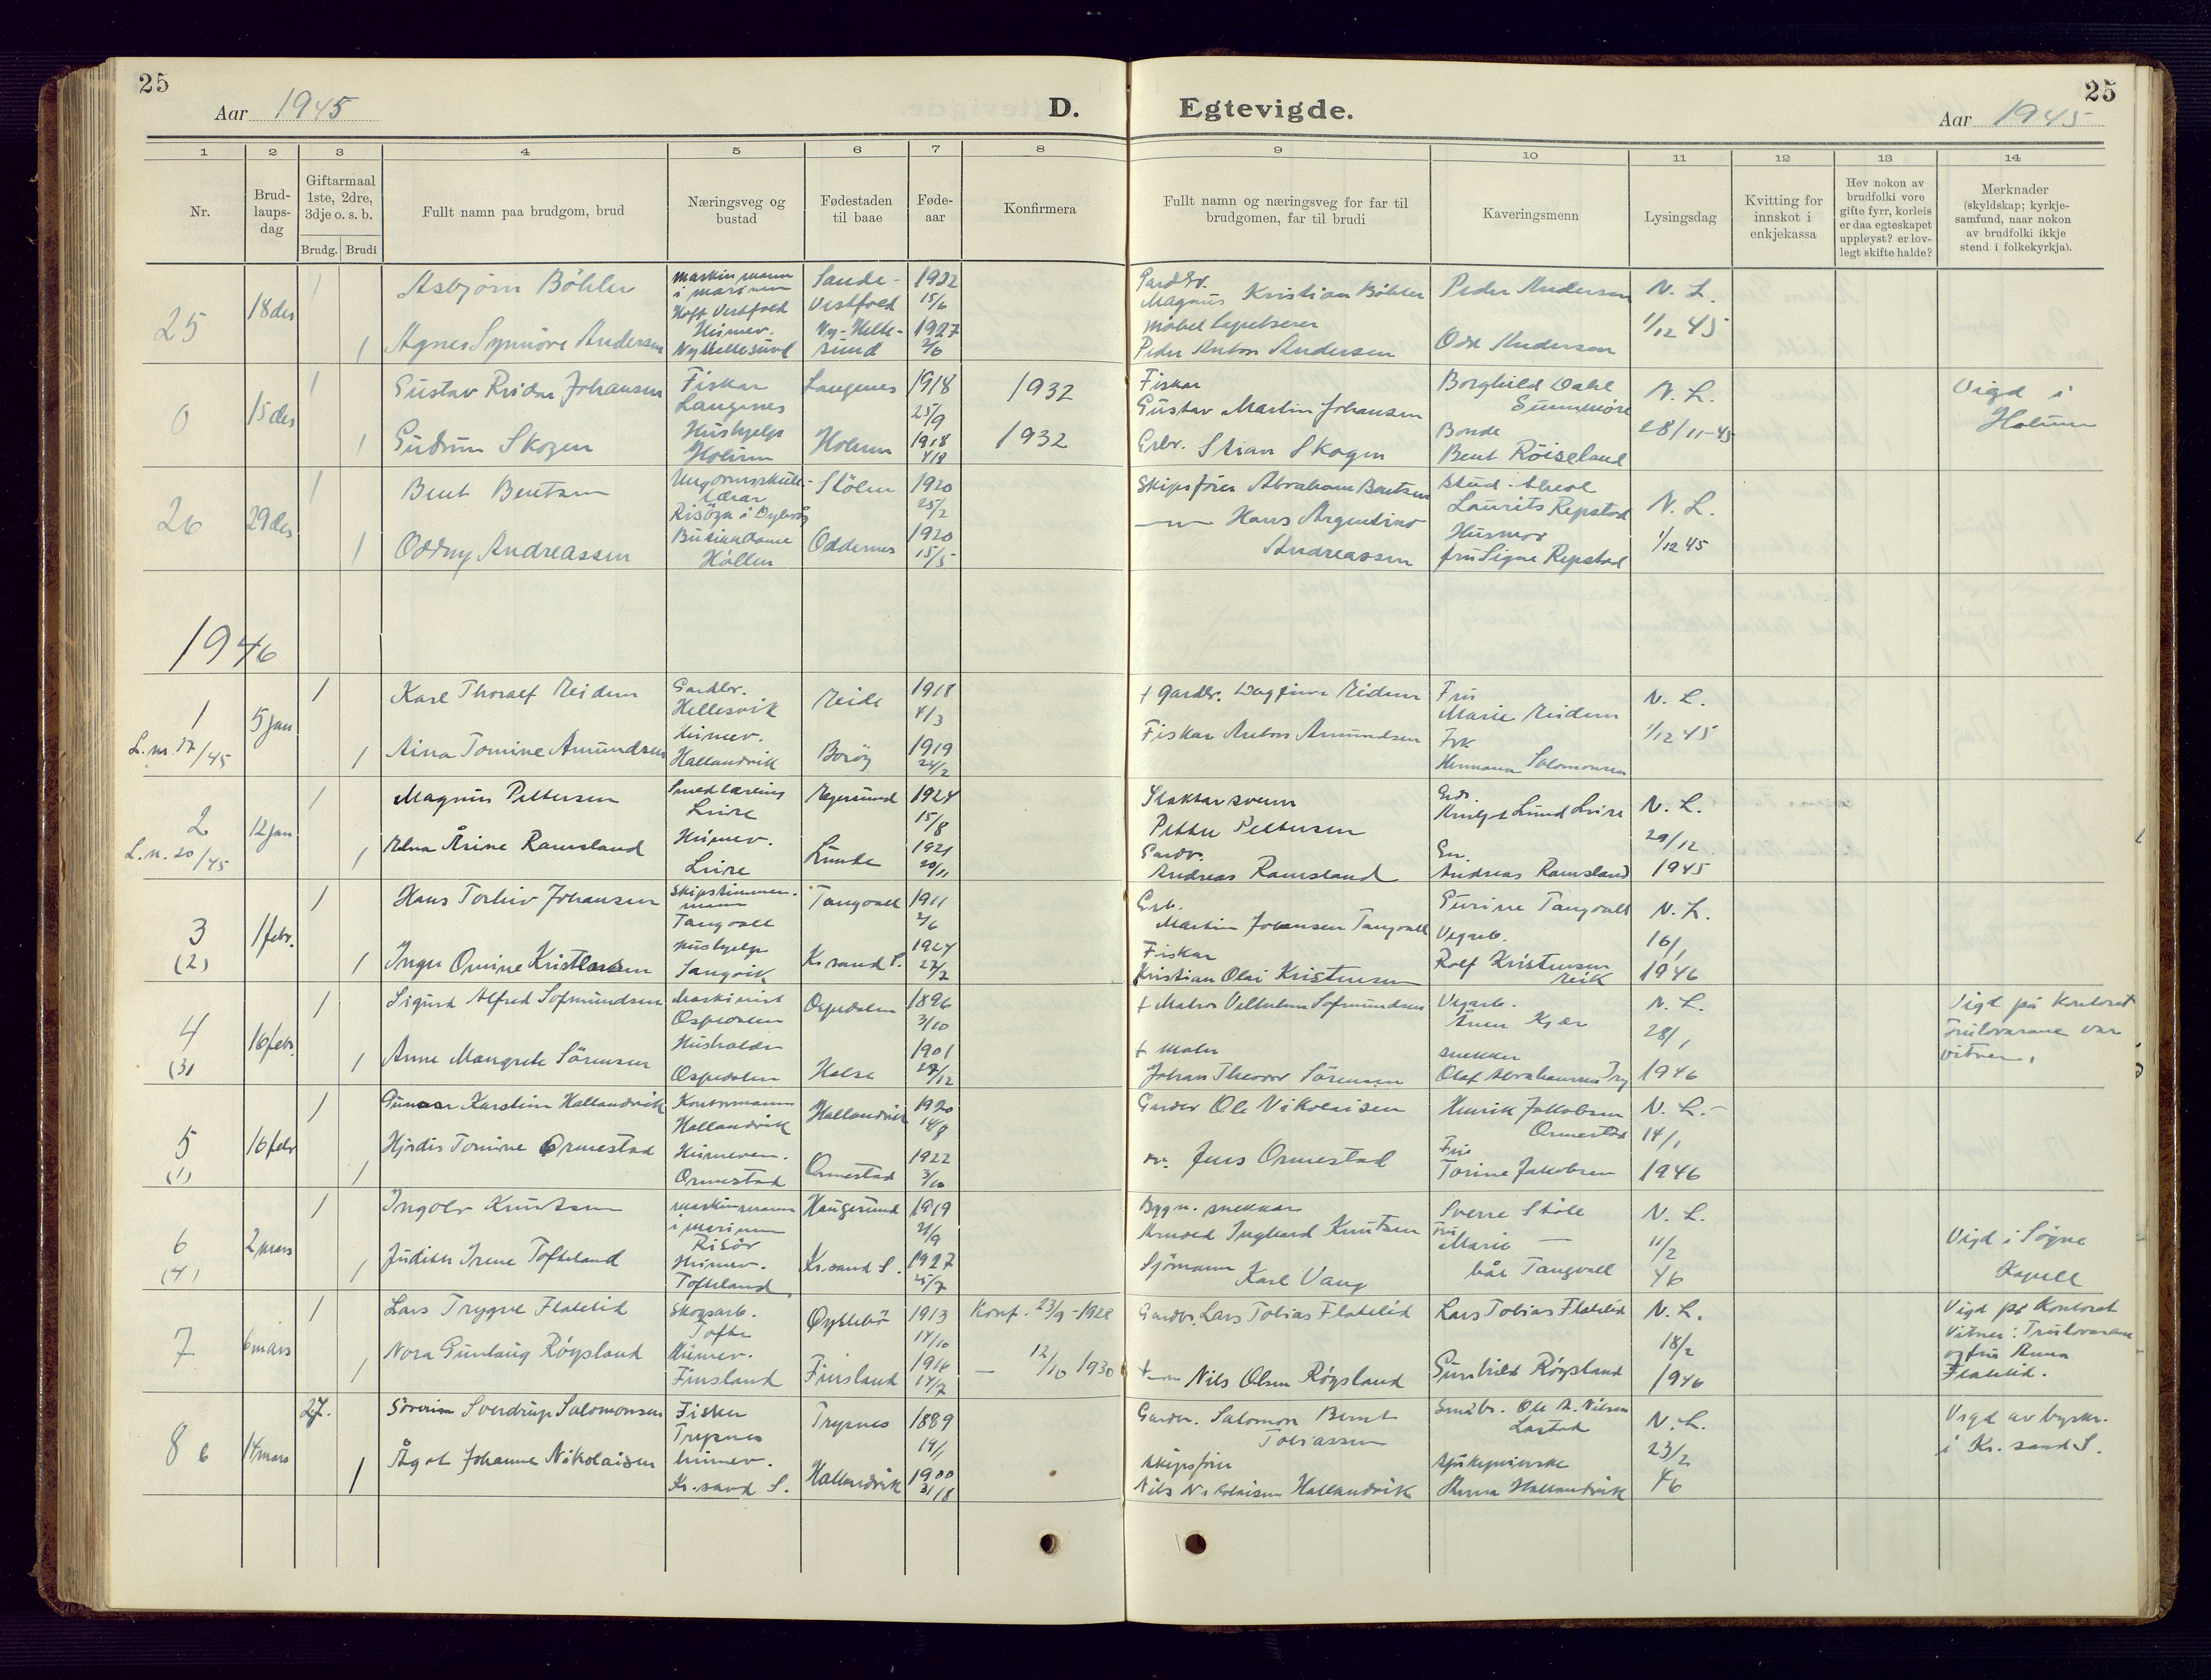 25
Aar 1945
D. Egtevigde.
25
Aar 1945
1 2 3 4 5 6 7 8 9 10 11 12 13 14
Nr.
Brud-
laups-
dag
Giftarmaal
1ste, 2dre,
3dje o. s. b.
Brudg. Brudi
Fullt namn paa brudgom, brud
Næringsveg og
bustad
Fødestaden
til baae
Føde-
aar
Konfirmera
Fullt namn og næringsveg for far til
brudgomen, far til brudi
Kaveringsmenn
Lysingsdag
Kvitting for
innskot i
enkjekassa
Hev nokon av
brudfolki vore
gifte fyrr, korleis
er daa egteskapet
uppløyst? er lov-
legt skifte halde?
Merknader
(skyldskap; kyrkje-
samfund, naar nokon
av brudfolki ikkje
stend i folkekyrkja).
25 18 des
1 Asbjörn Böhler maskinmann i marinen Hoff Vestfold Sande - Vestfold 1922 15/6
Magnus Kristian Böhler Peder Andersen N. L. 1/12 45
1 Agnes Synnöve Andersen Heimev. Ny Hellesund Ny-Helle-sund 1927
Peder Anton Andersen Odd Andersen
0 15 des
1 Gustav Reidar Johansen Fiskar Langenes Langenes 1918 25/9 1932
Fiskar Gustav Martin Johansen Borghild Dahl N. L. 28/11-45 Vigd i Holum
1 Gudrun Skogen Hushjelp Holum Holum 1918 1932
Stian Skogen Bonde Bent Röiseland
26 29 des
1 Bent Bentsen Risöya i Dybvåg Stölen 1920 25/2
Skipsförer Abraham Bentsen stud. theol Laurits Repstad N. L. 1/12 45
1 Oddny Andreassen Butikkdame Höllen Oddernes 1920 15/5
Hans Argentino Andreassen Husmor fru Signe Repstad
1946
1 5 jan L. nr. 17/45
1 Karl Thoralf Reidun Gardbr. Hellesvik 1918 4/3
+ Gardbr. Fru Marie N. L. 1/12 45
1 Aina Tomine Amundsen Heimev. Hallandvik Boröy 1919 24/2
Fiskar Anton Amundsen Hermann Salomonsen
2 12 jan L. n. 20/45
1 Magnus Pettersen Smedlærling Leire Egersund 1924 15/8
Slaktarsvenn Petter Pettersen N. L. 29/12 1945
1 Elna Årine Ramsland Heimev. Leire Lunde 1921 20/11
Gardbr. Andreas Ramsland Andreas Ramsland
3 (2) 1 febr.
1 Hans Torleiv Johansen Skipstimmermann Tangvall Tangvall 1911
Martin Johansen Tangvall Gurine Tangvall N. L. 16/1 1946
1 Inger Omine Kristensen Hushjelp Langvik Kr. sand S. 1924
Fiskar Kristian Olai Kristensen Vegarb. Rolf Kristensen
4 (3) 16 febr.
1 Sigurd Alfred Sofmundsen Maskinist Ospedalen Ospedalen 1896 3/10
+ Matros Vilhelm Sofmundsen Vegarb. Kjær N. L. 28/1 1946
Vigd på Kontoret Trulovarane var vitner.
1 Anne Margrete Sörensen Husholder Ospedalen Halse 1901 27/12
+ maler Johan Theodor Sörensen snekker Olaf Abrahamsen
5 (1) 16 febr
1 Gunnar Karstein Hallandvik Kontormann Hallandvik Hallandvik 1920
Gardbr Ole Nikolaisen Henrik Jakobsen Ormestad N. L. 14/1 1946
1 Hjördis Tomine Ormestad Heimeven. Ormestad Ormestad 1922 3/10
Jens Ormestad Fru Torine Jakobsen
6 (4) 2 mars
1 Ingolv Knutsen maskinmann i marinen Risör Haugesund 1919
Bygn. snekkar Arnold Ingvard Knutsen Sverre Stöle N. L. 11/2 46
Vigd i Søgne Kapell
1 Judith Irene Tofteland Heimev. Tofteland Kr. sand S. 1927 25/7
Sjömann Karl Vang Fru Marie — Tangvall
7 6 mars
1 Lars Trygve Flatelid Skogsarb. Tofte Øyslebö 1913 14/10 Konf. 23/9-1928
Gardbr. Lars Tobias Flatelid Lars Tobias Flatelid N. L. 18/2 1946
Vigd på Kontoret Vitner: Trulovarane og fru Anna Flatelid.
1 Nora Gunlaug Røysland Heimev. Finsland Finsland 1916 14/7 — 12/10 1930
+ Nils Olsen Røysland Gunhild Røysland
8 6 14 mars
27. Söverin Sverdrup Salomonsen Fisker Trysnes Trysnes 1889 19/1
Gardbr. Salomon Bernt Tobiassen Småbr. Ole A. Nilsen N. L. 23/2 46
Vigd av byskr. i Kr. sand S.
1 Ågot Johanne Nikolaisen heimev. Kr. sand S. Hallandvik 1900 31/8
skipsförer Nils Nikolaisen Hallandvik sjukepleierske Anna Hallandvik